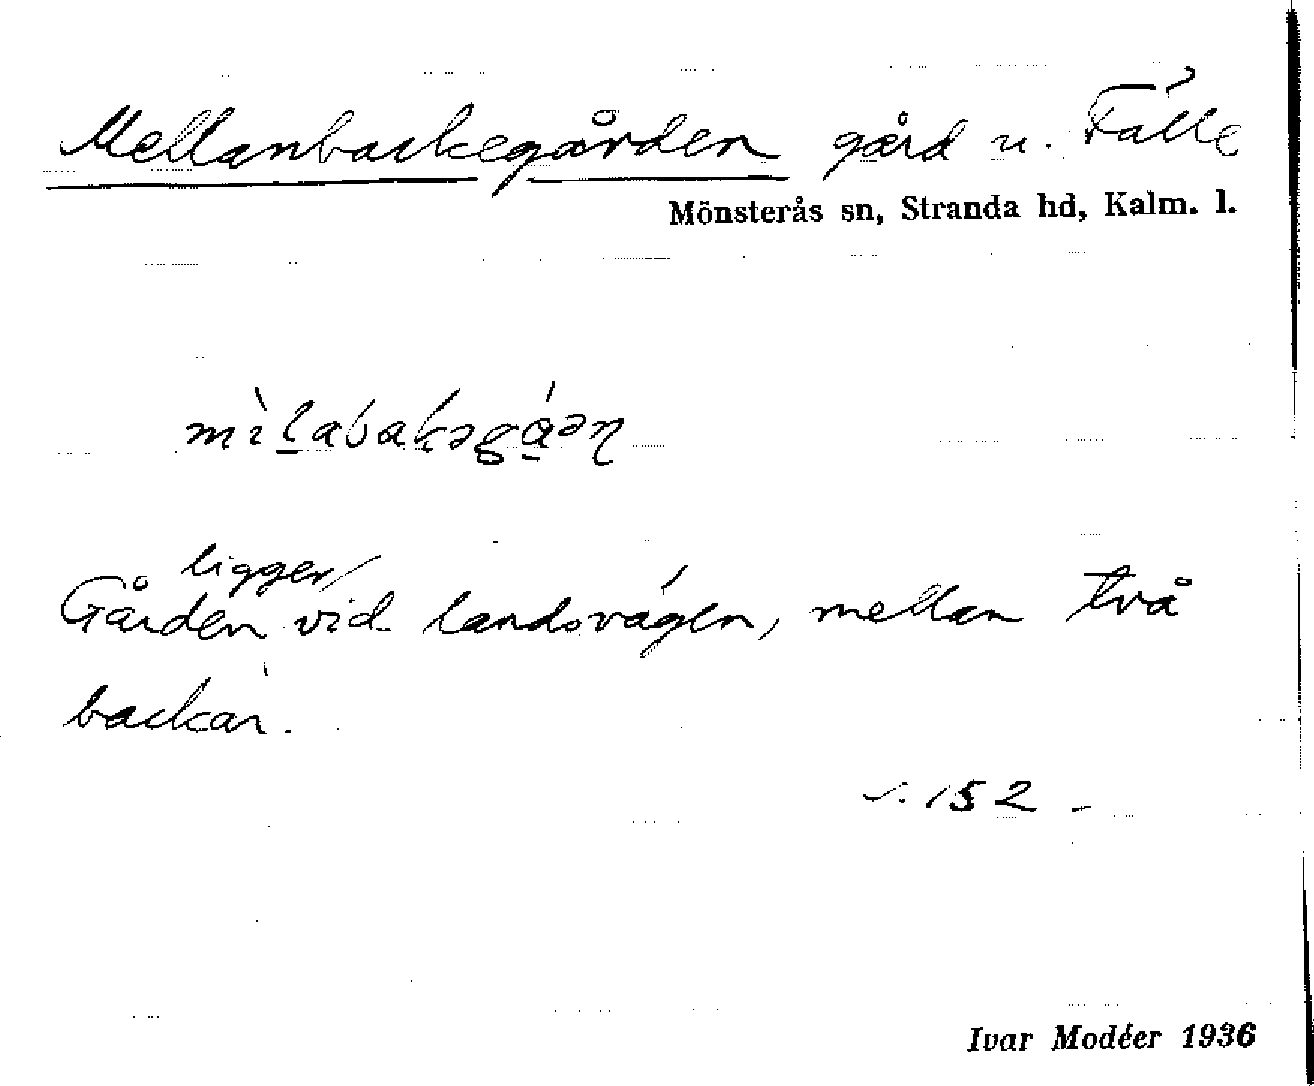 Mellanbackegården gård u. Fälle
Mönsterås sn, Stranda hd, Kalm. l.
Gården ligger vid landsvägen, mellan två
backar.
s. 152 -
Ivar Modéer 1936